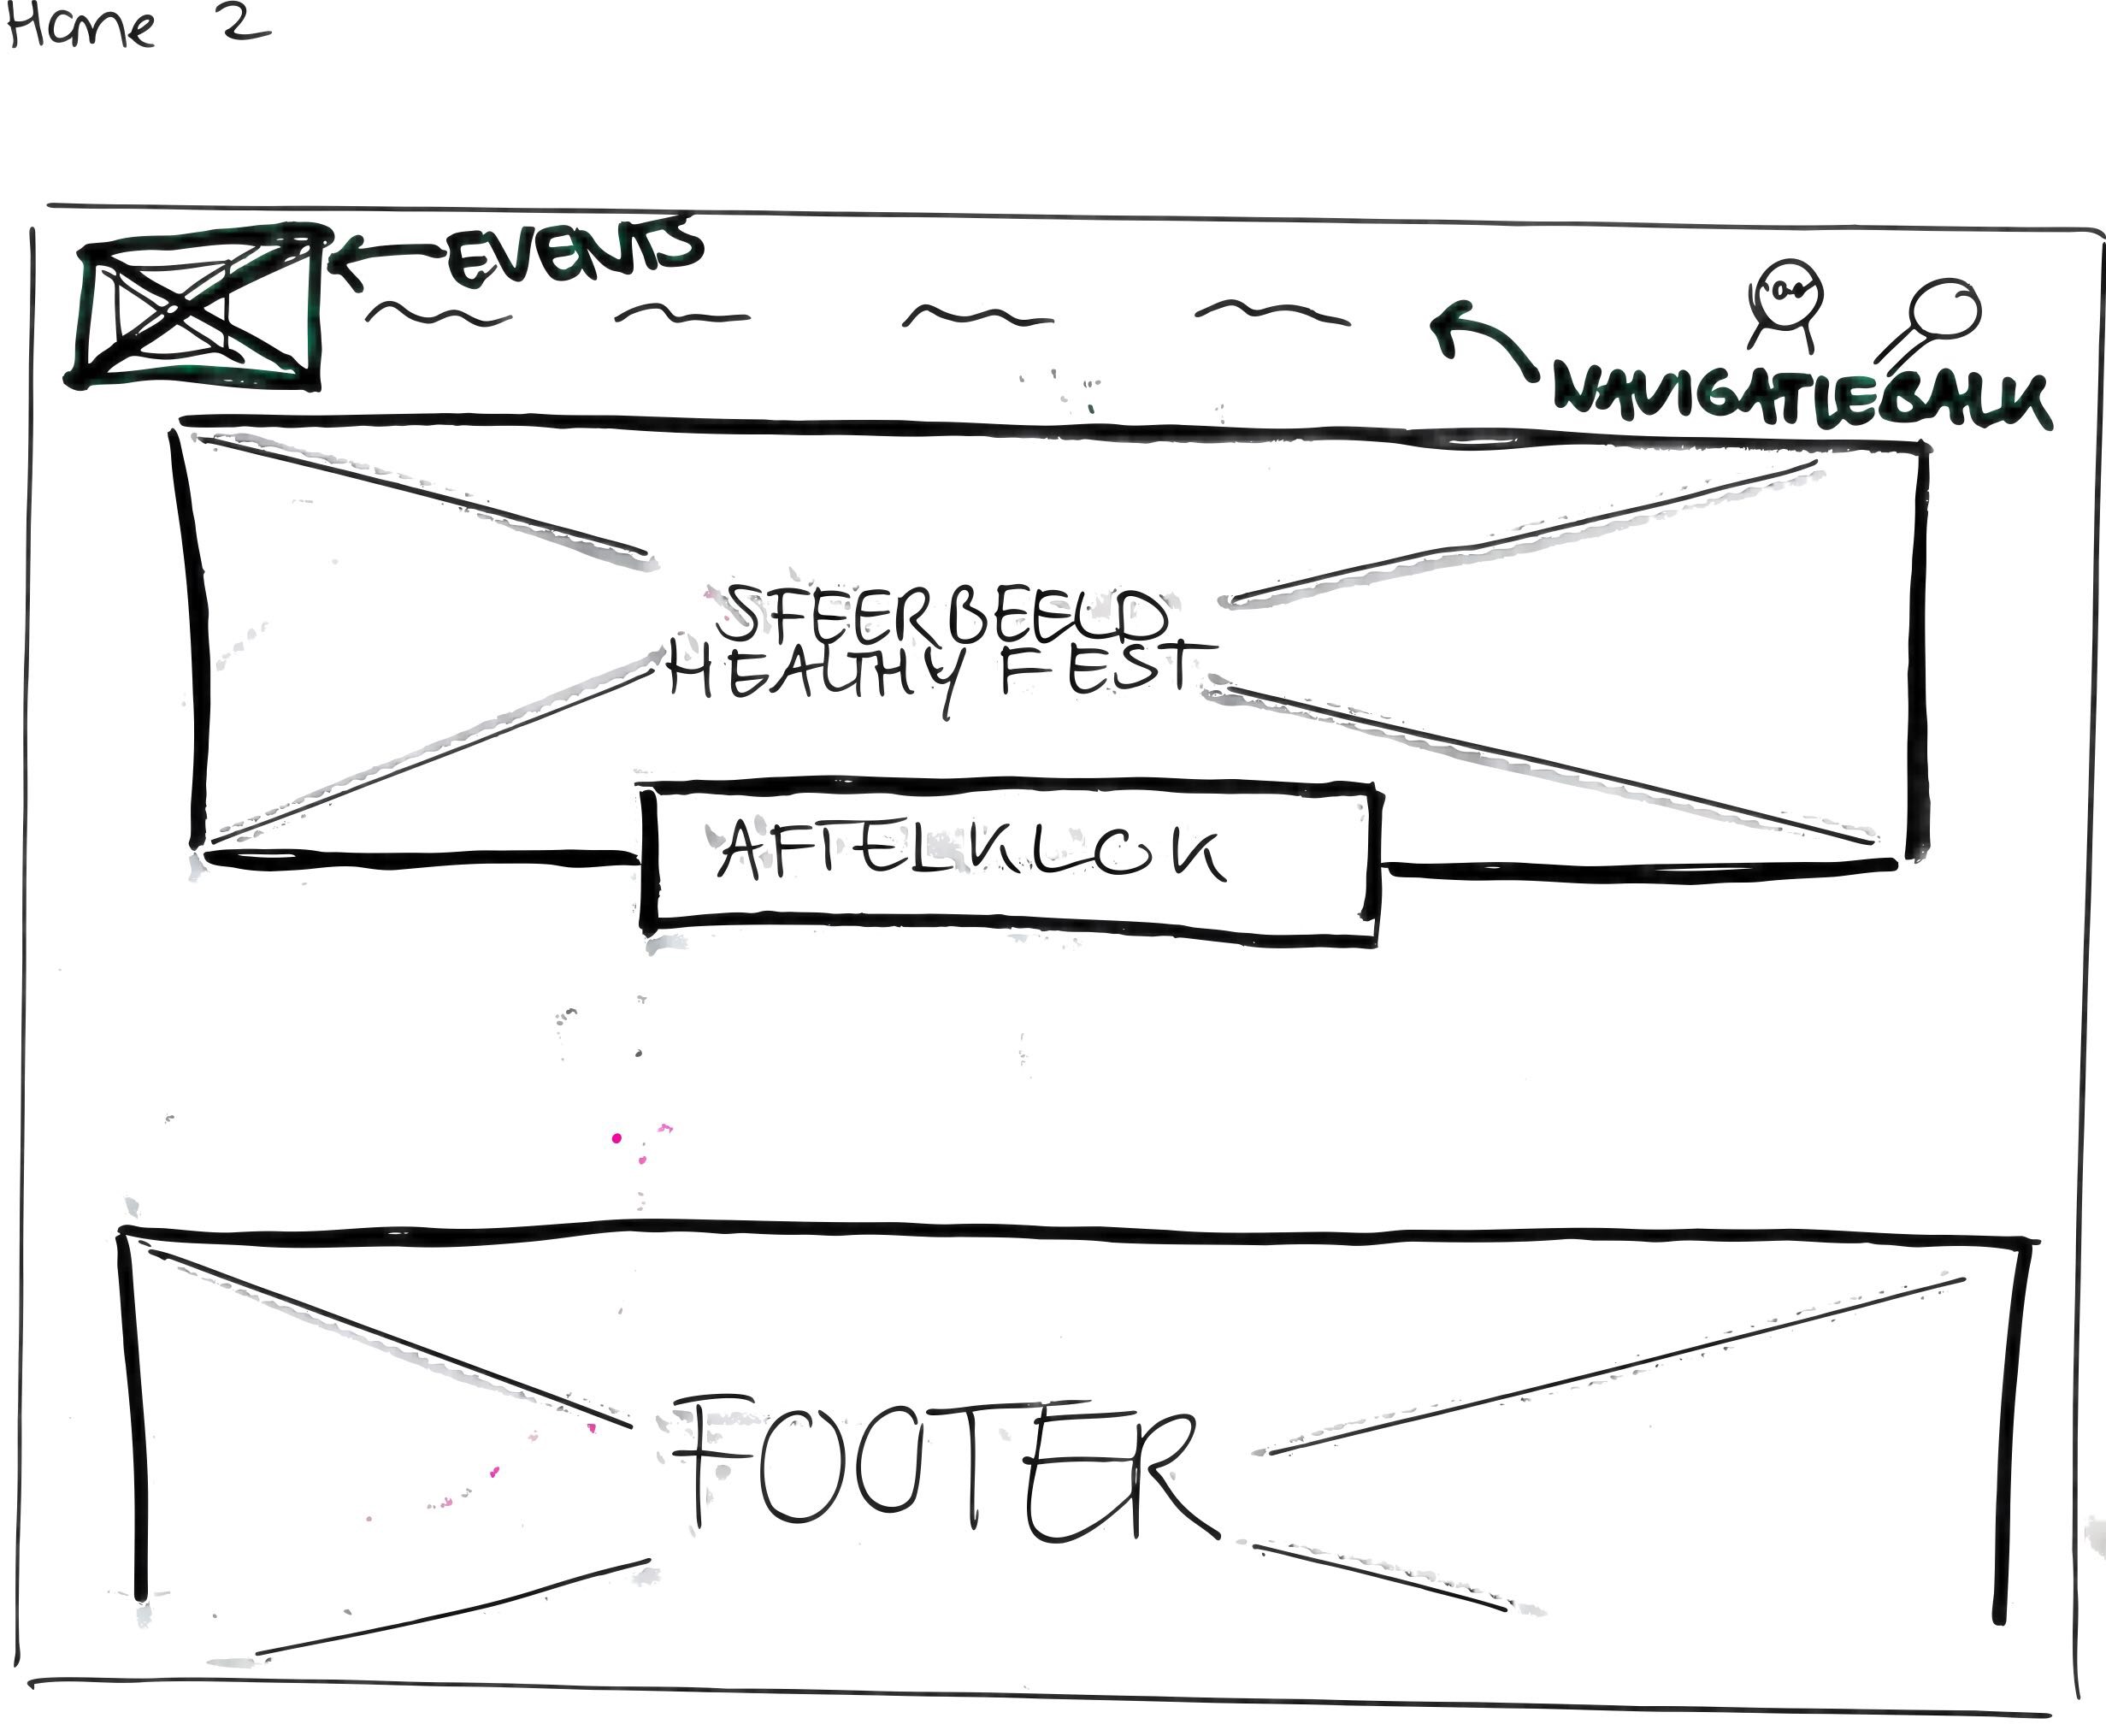 Home 2
EVENTS
NAVIGATIEBALK
SFEERBEELD
HEALTHY FEST
AFTELKLOK
FOOTER